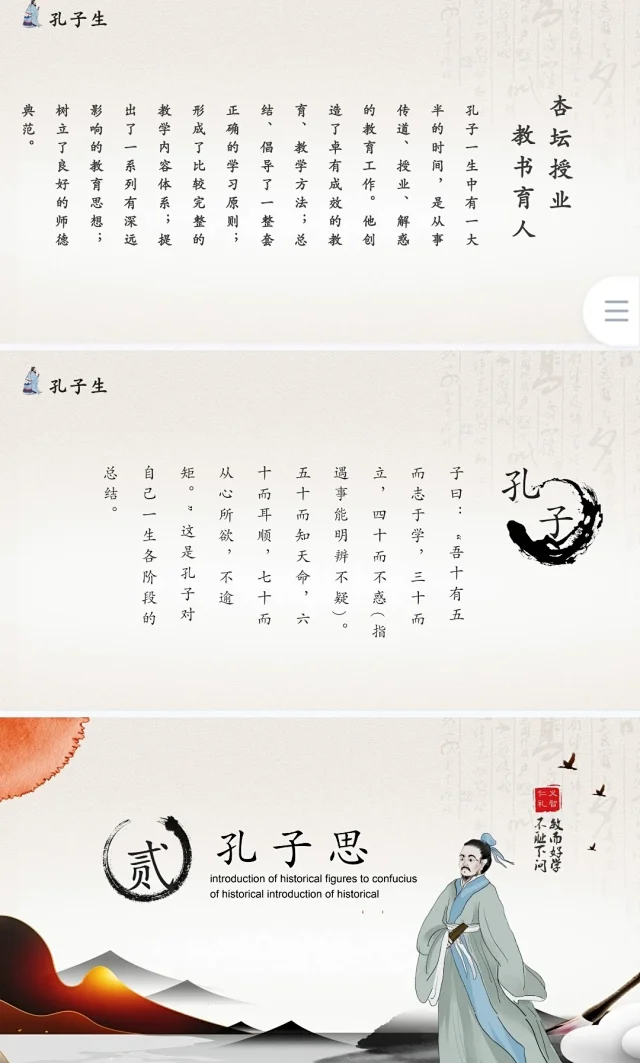 孔子生
杏坛授业
教书育人
孔子一生中有一大
半的时间，是从事
传道、授业、解惑
的教育工作。他创
造了卓有成效的教
育、教学方法；总
结、倡导了一整套
正确的学习原则；
形成了比较完整的
教学内容体系；提
出了一系列有深远
影响的教育思想；
树立了良好的师德
典范。
孔子生
孔子
子曰：“吾十有五
而志于学，三十而
立，四十而不惑(指
遇事能明辨不疑)。
五十而知天命，六
十而耳顺，七十而
从心所欲，不逾
矩。”这是孔子对
自己一生各阶段的
总结。
贰
孔子思
introduction of historical figures to confucius
of historical introduction of historical
仁义
礼智
敏而好学
不耻下问